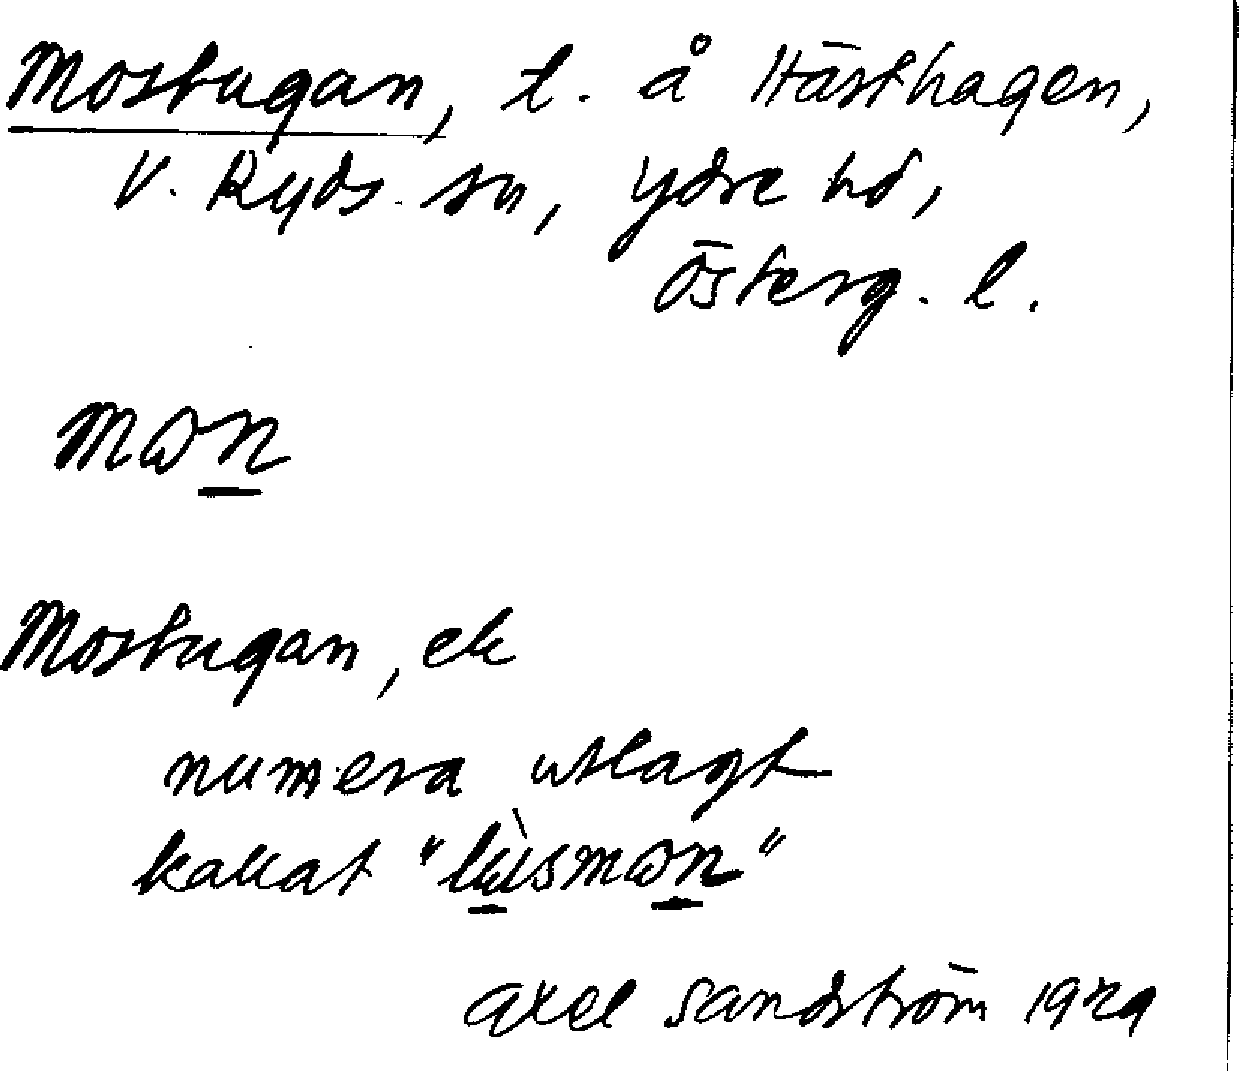 Mostugan, t. å Hästhagen,
V. Ryds sn, Ydre hd,
Österg. l.
mɷn
Mostugan, ek
numera utlagt
kallat "lùsmɷn"
Axel Sandström 1929